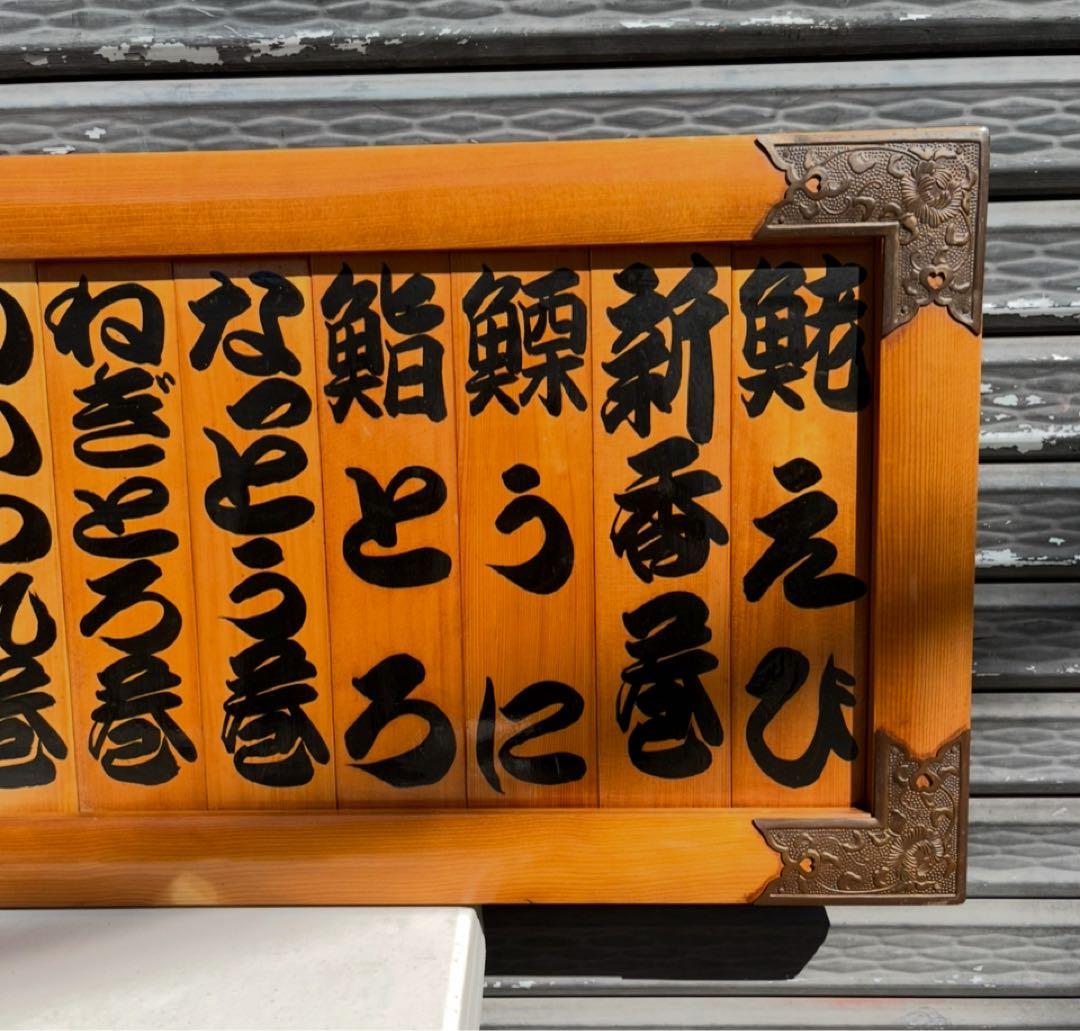 鮱えび
新香巻
うに
鮨とろ
なっとう巻
ねぎとろ巻
巻